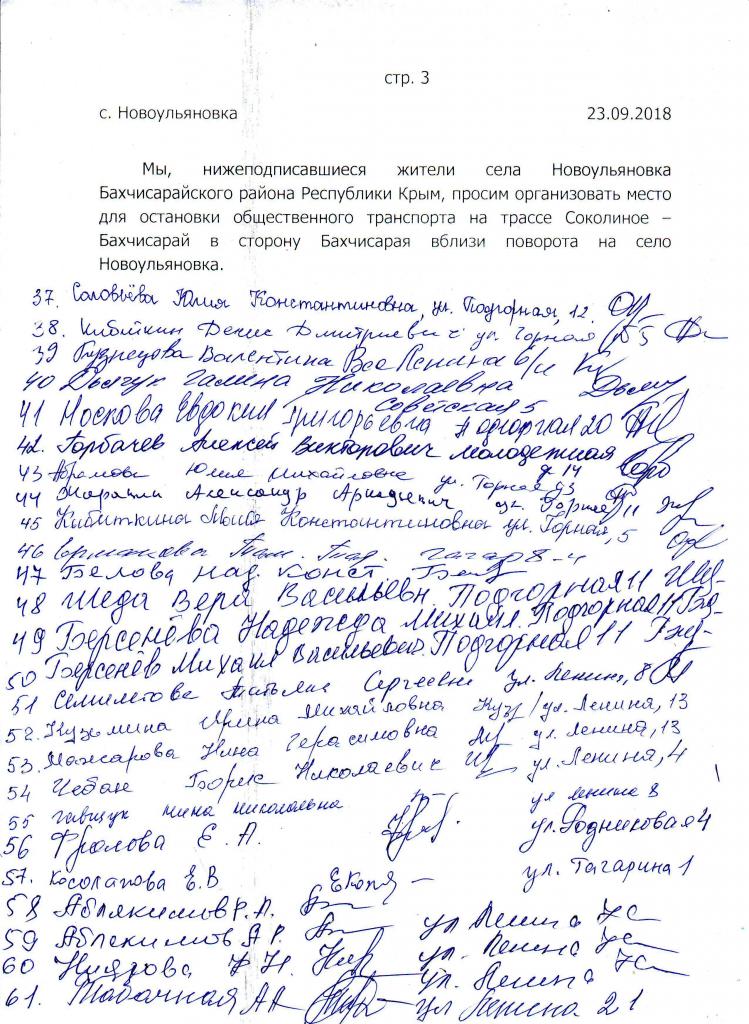 стр. 3
с. Новоульяновка 23.09.2018
Мы, нижеподписавшиеся жители села Новоульяновка
Бахчисарайского района Республики Крым, просим организовать место
для остановки общественного транспорта на трассе Соколиное –
Бахчисарай в сторону Бахчисарая вблизи поворота на село
Новоульяновка.
37. Соловьёва Юлия Константиновна, ул. Подгорная, 12.
38. Кибиткин Денис Дмитриевич ул. Горная 5
39 Кузнецова Валентина Ленина б/н
40 Галина Николаевна
Советская 5
41 Носкова Евдокия Григорьевна Подгорная 20
42. Горбачев Алексей Викторович Молодежная
д 14
43 Абрамова Юлия Михайловна ул. Горная 23
44 Александр Аркадиевич ул. Горная 11
45 Кибиткина Константиновна ул. Горная, 5
46 8-4
47 Белова Над. Конст.
48 Шеда Вера Васильевн Подгорная 11
49 Берсенёва Надежда Михайл. Подгорная 11
50 Берсенёв Михаил Васильевич. Подгорная 11
51 Татьяна Сергеевна ул. Ленина, 8
52. Кузьмина Ирина Михайловна ул. Ленина, 13
53. Нина Герасимовна ул. Ленина, 13
54 Чебан Борис Николаевич ул. Ленина, 4
55 Гаващук Нина Николаевна ул Ленина 8
56 Фролова Е. А. ул. Родниковая 4
57. Косолапова Е.В ул. Гагарина 1
58 Аблякимов Р. А. ул Ленина
59 Аблякимов А Р. ул. Ленина
60 ул. Ленина
61. Табачная А А ул Ленина 21